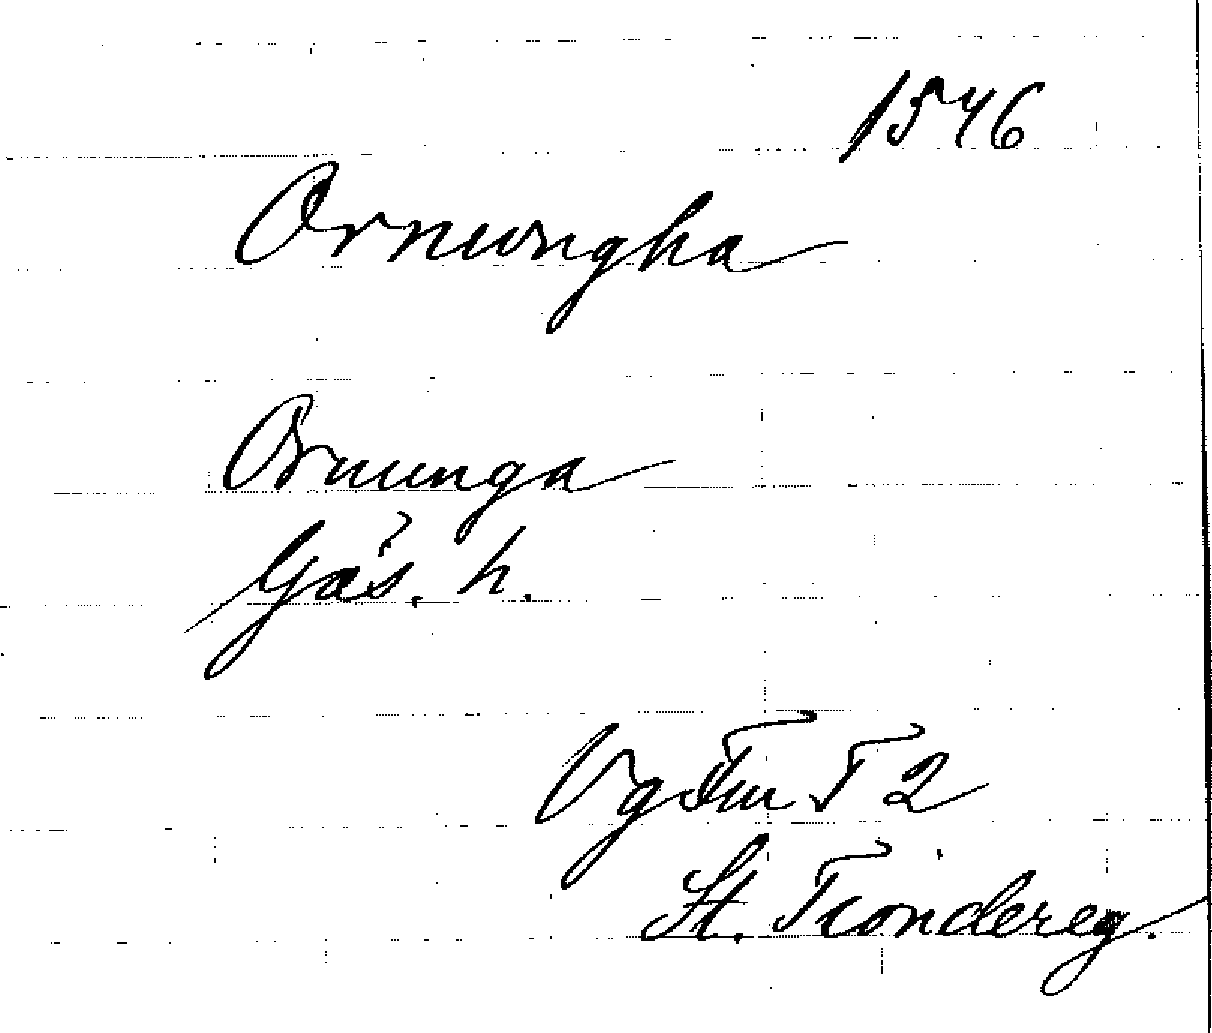 1546
Ornungha
Ornunga
Gäs. h.
Vg Tm T 2
St. Tiondereg.